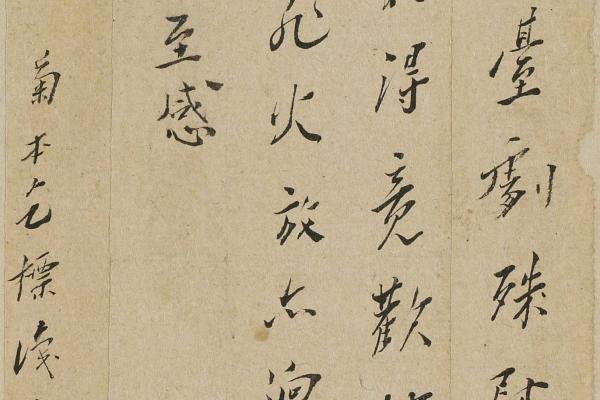 臺劇殊
得竟歡
火放亦
至感
菊本乞標淺